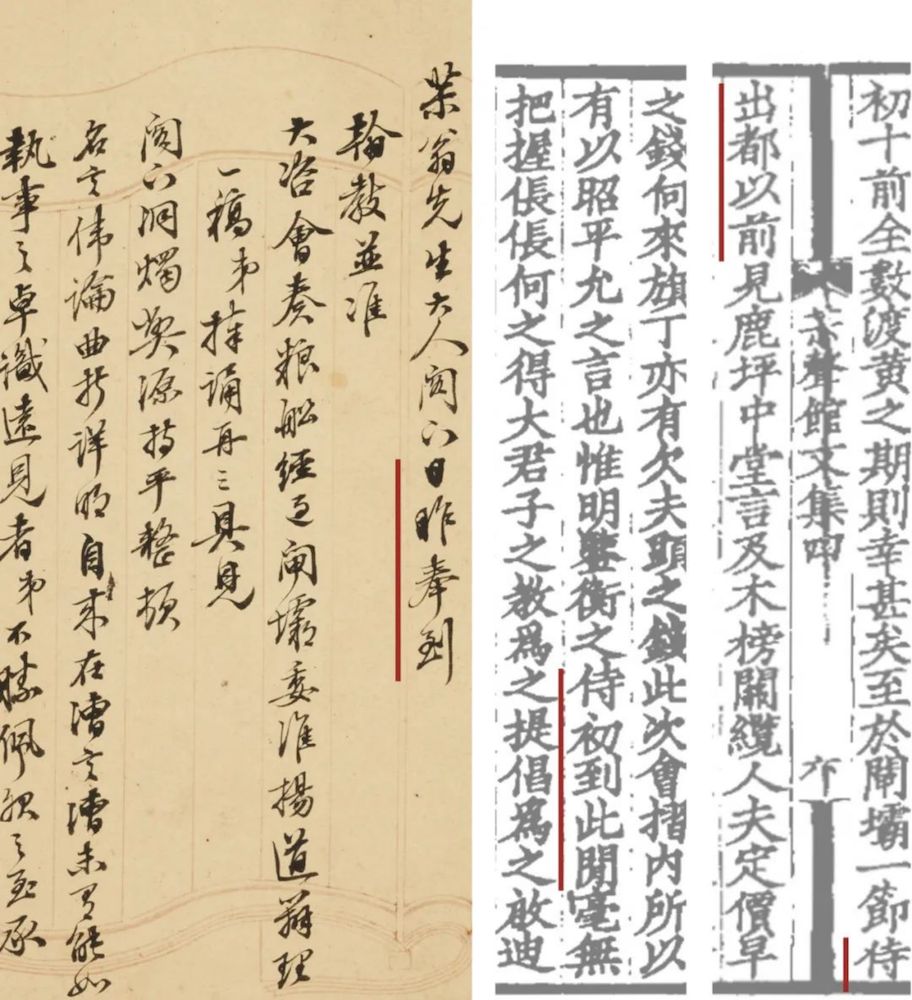 初十前全數渡黃之期則幸甚矣至於閘壩一節侍
蕉聲館文集四 六
出都以前見鹿坪中堂言及木榜關纜人夫定價早
之錢何來旗丁亦有欠夫頭之錢此次會摺內所以
有以昭平允之言也惟明鑒衡之侍初到此閒毫無
把握倀倀何之得大君子之教爲之提倡爲之啟迪
茮翁先生大人閣下日昨奉到
翰教並准
大咨會奏粮船經過閘壩委淮揚道辦理
一稿弟捧誦再三具見
閣下洞燭弊源持平整頓
名言偉論曲折詳明自來在漕言漕未有能如
執事之卓識遠見者弟不勝佩服之至承